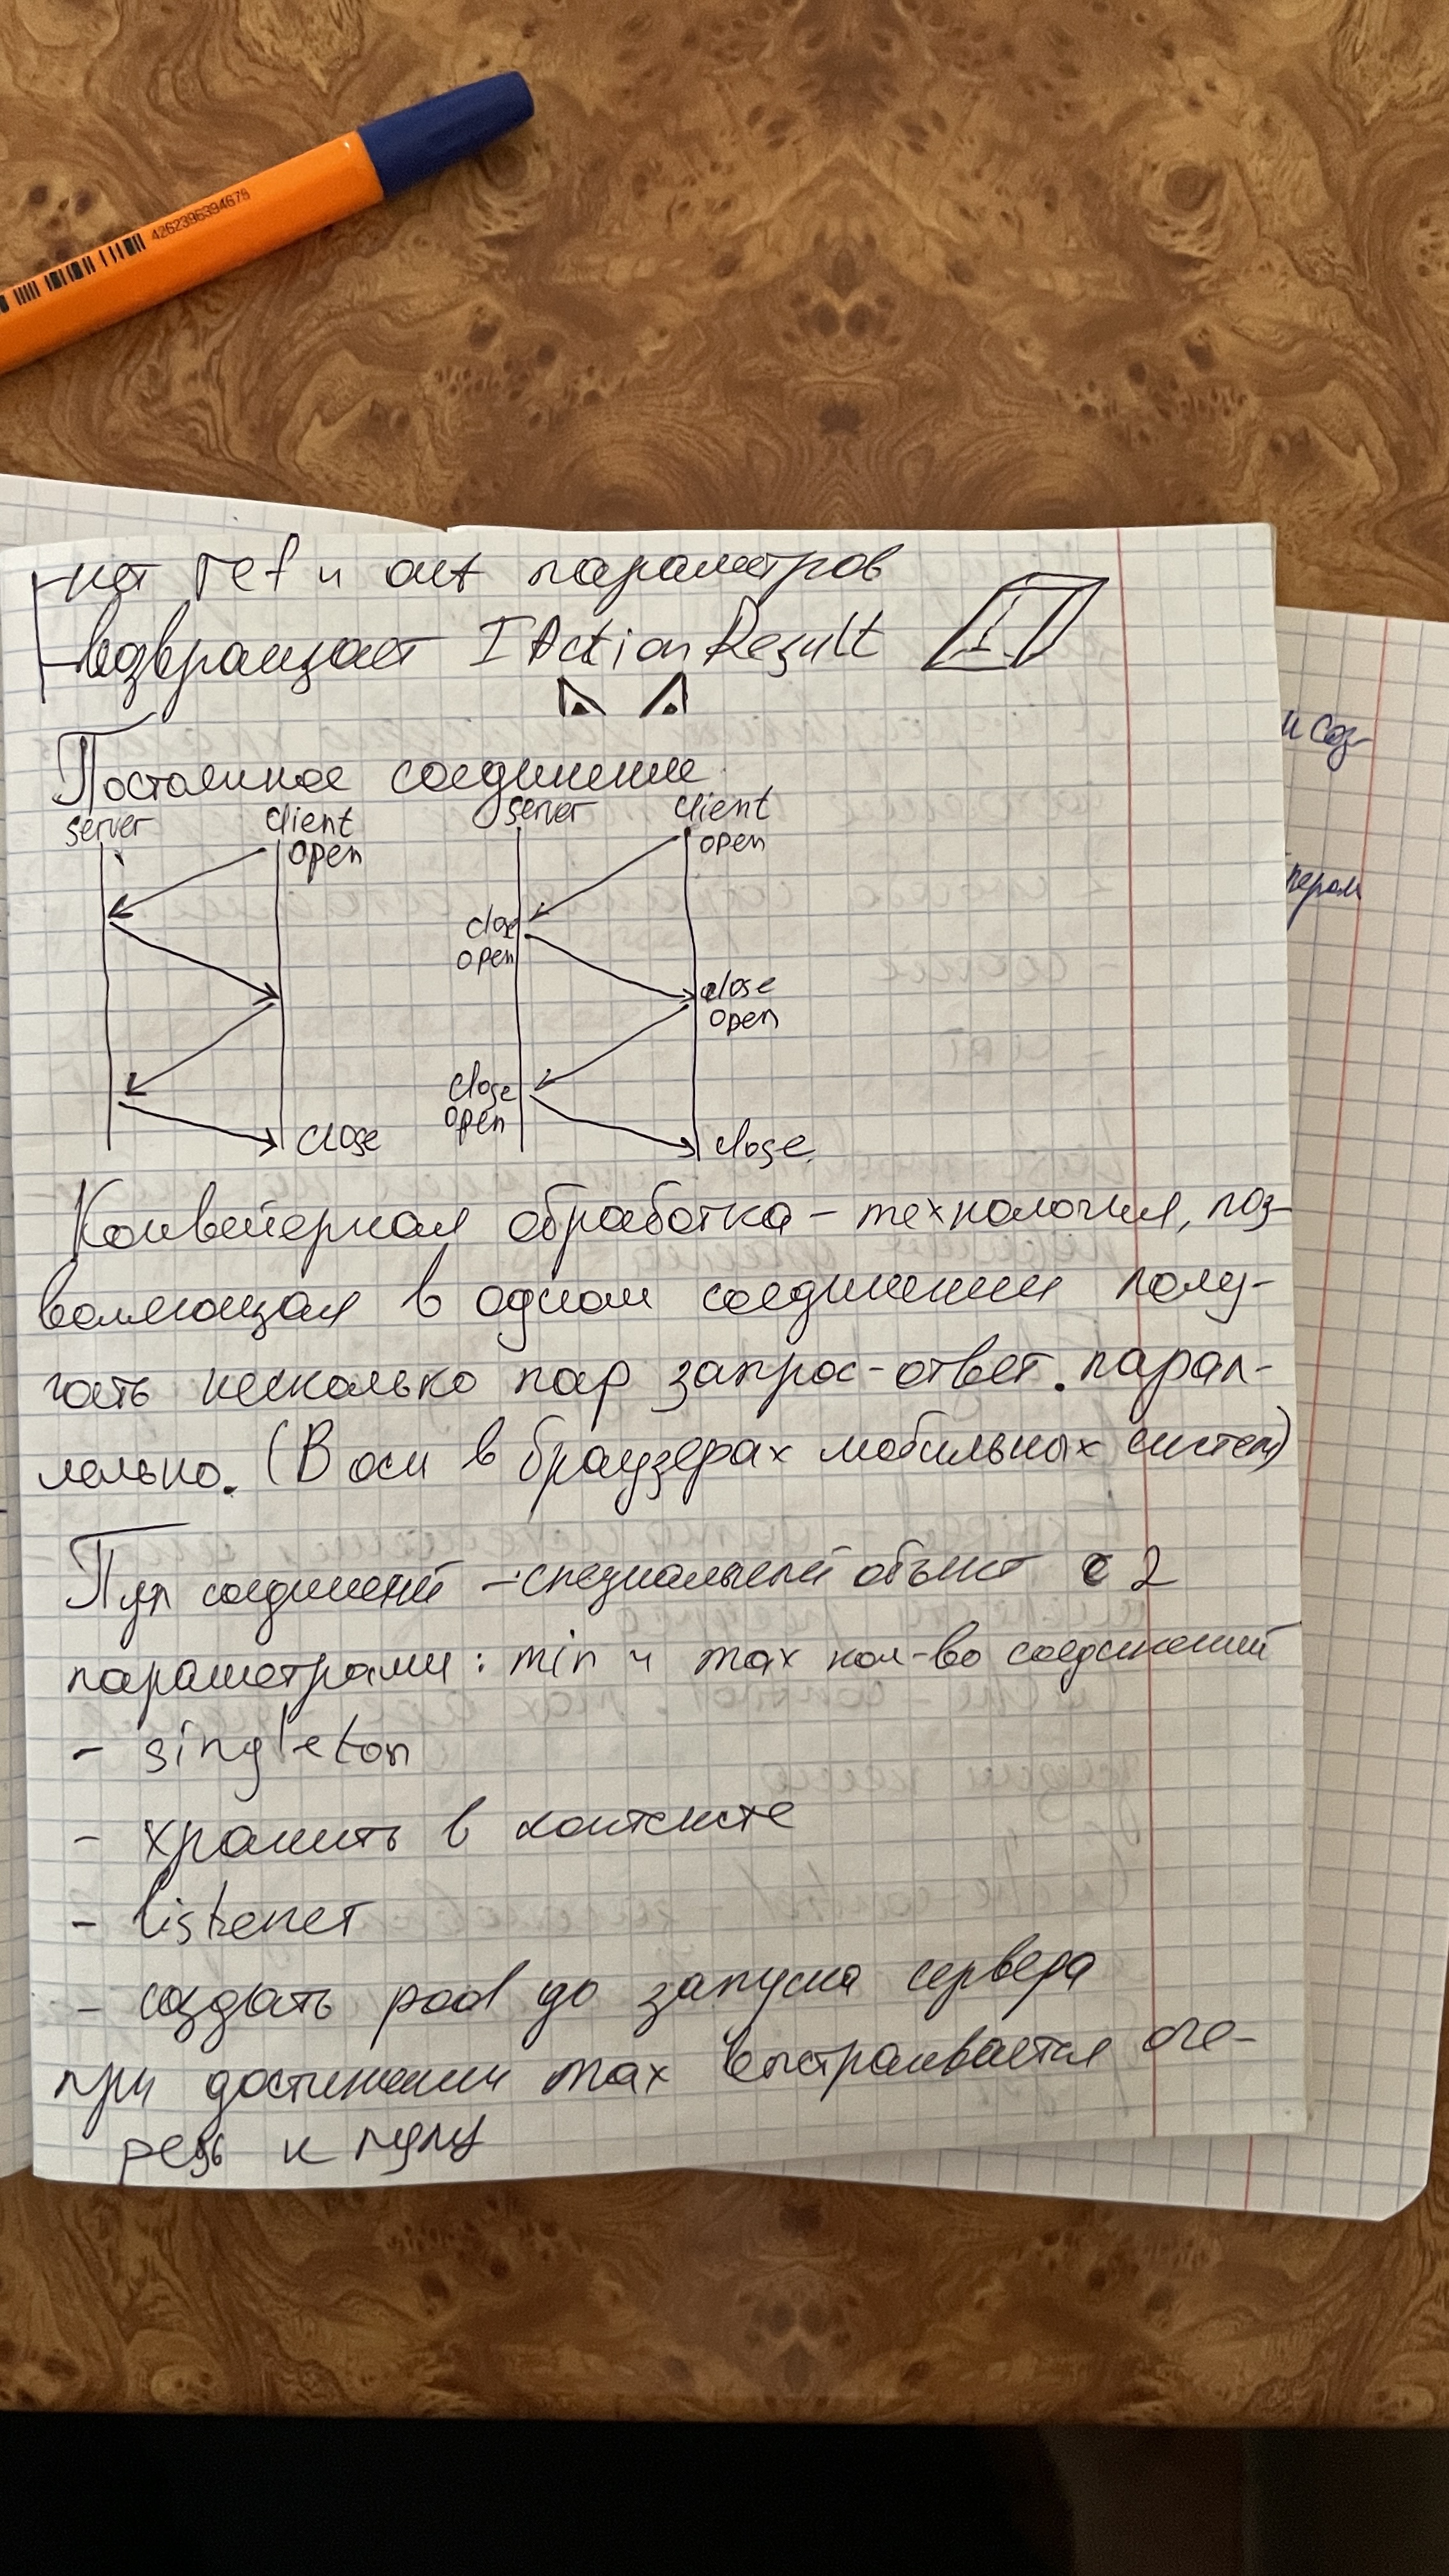 4262396394678
- нет ref и out параметров
- возвращает IActionResult
I
и соз-
Постоянное соединение
server client server client
open open
close
open
close
open
close
open
close close
пером
Конвейерная обработка - технология, поз-
воляющая в одном соединении полу-
чать несколько пар запрос-ответ. парал-
лельно. (В осн в браузерах мобильных систем)
Пул соединений - специальный объект с 2
параметрами: min и max кол-во соединений
- singleton
- хранить в контексте
- listener
- создать pool до запуска сервера
при достижении max выстраивается оче-
редь к пулу